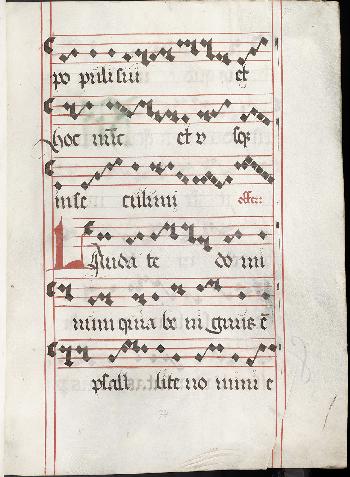 po puli sui et
hoc nūc et v sqꝫ
in sc culum offer.
Lauda te do mi
num quia be nignus ē
psall lite no mini e